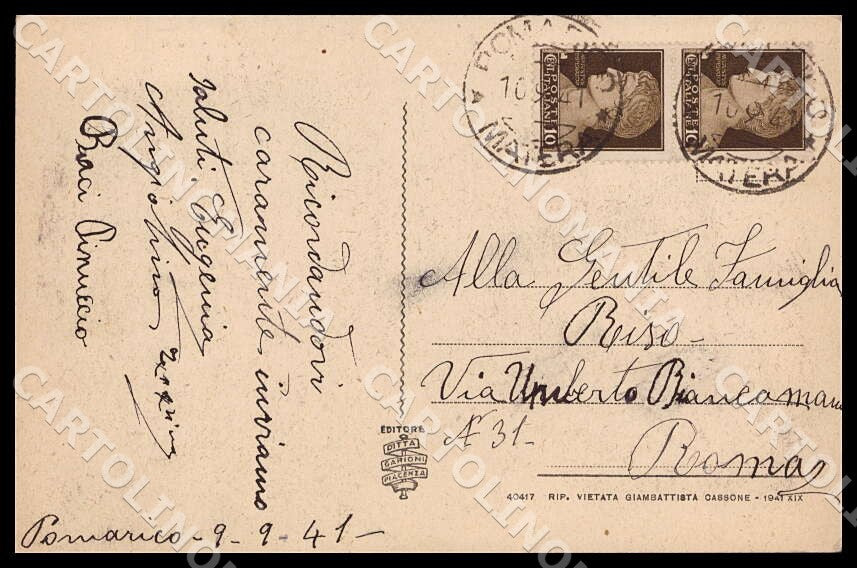 Ricordandovi
caramente inviamo
saluti Eugenia
Angiolino
Baci Pinuccio
Pomarico - 9 - 9 - 41 -
Alla Gentile Famiglia
Riso -
Via Umberto Biancamano
N° 31 -
Roma
EDITORE
DITTA
GARIONI
PIACENZA
40417 RIP. VIETATA GIAMBATTISTA CASSONE - 1941 XIX
10 9 41
MATERA
10 9 41
MATERA
POSTE
ITALIANE
10
POSTE
ITALIANE
10
CARTOLINOMANIA